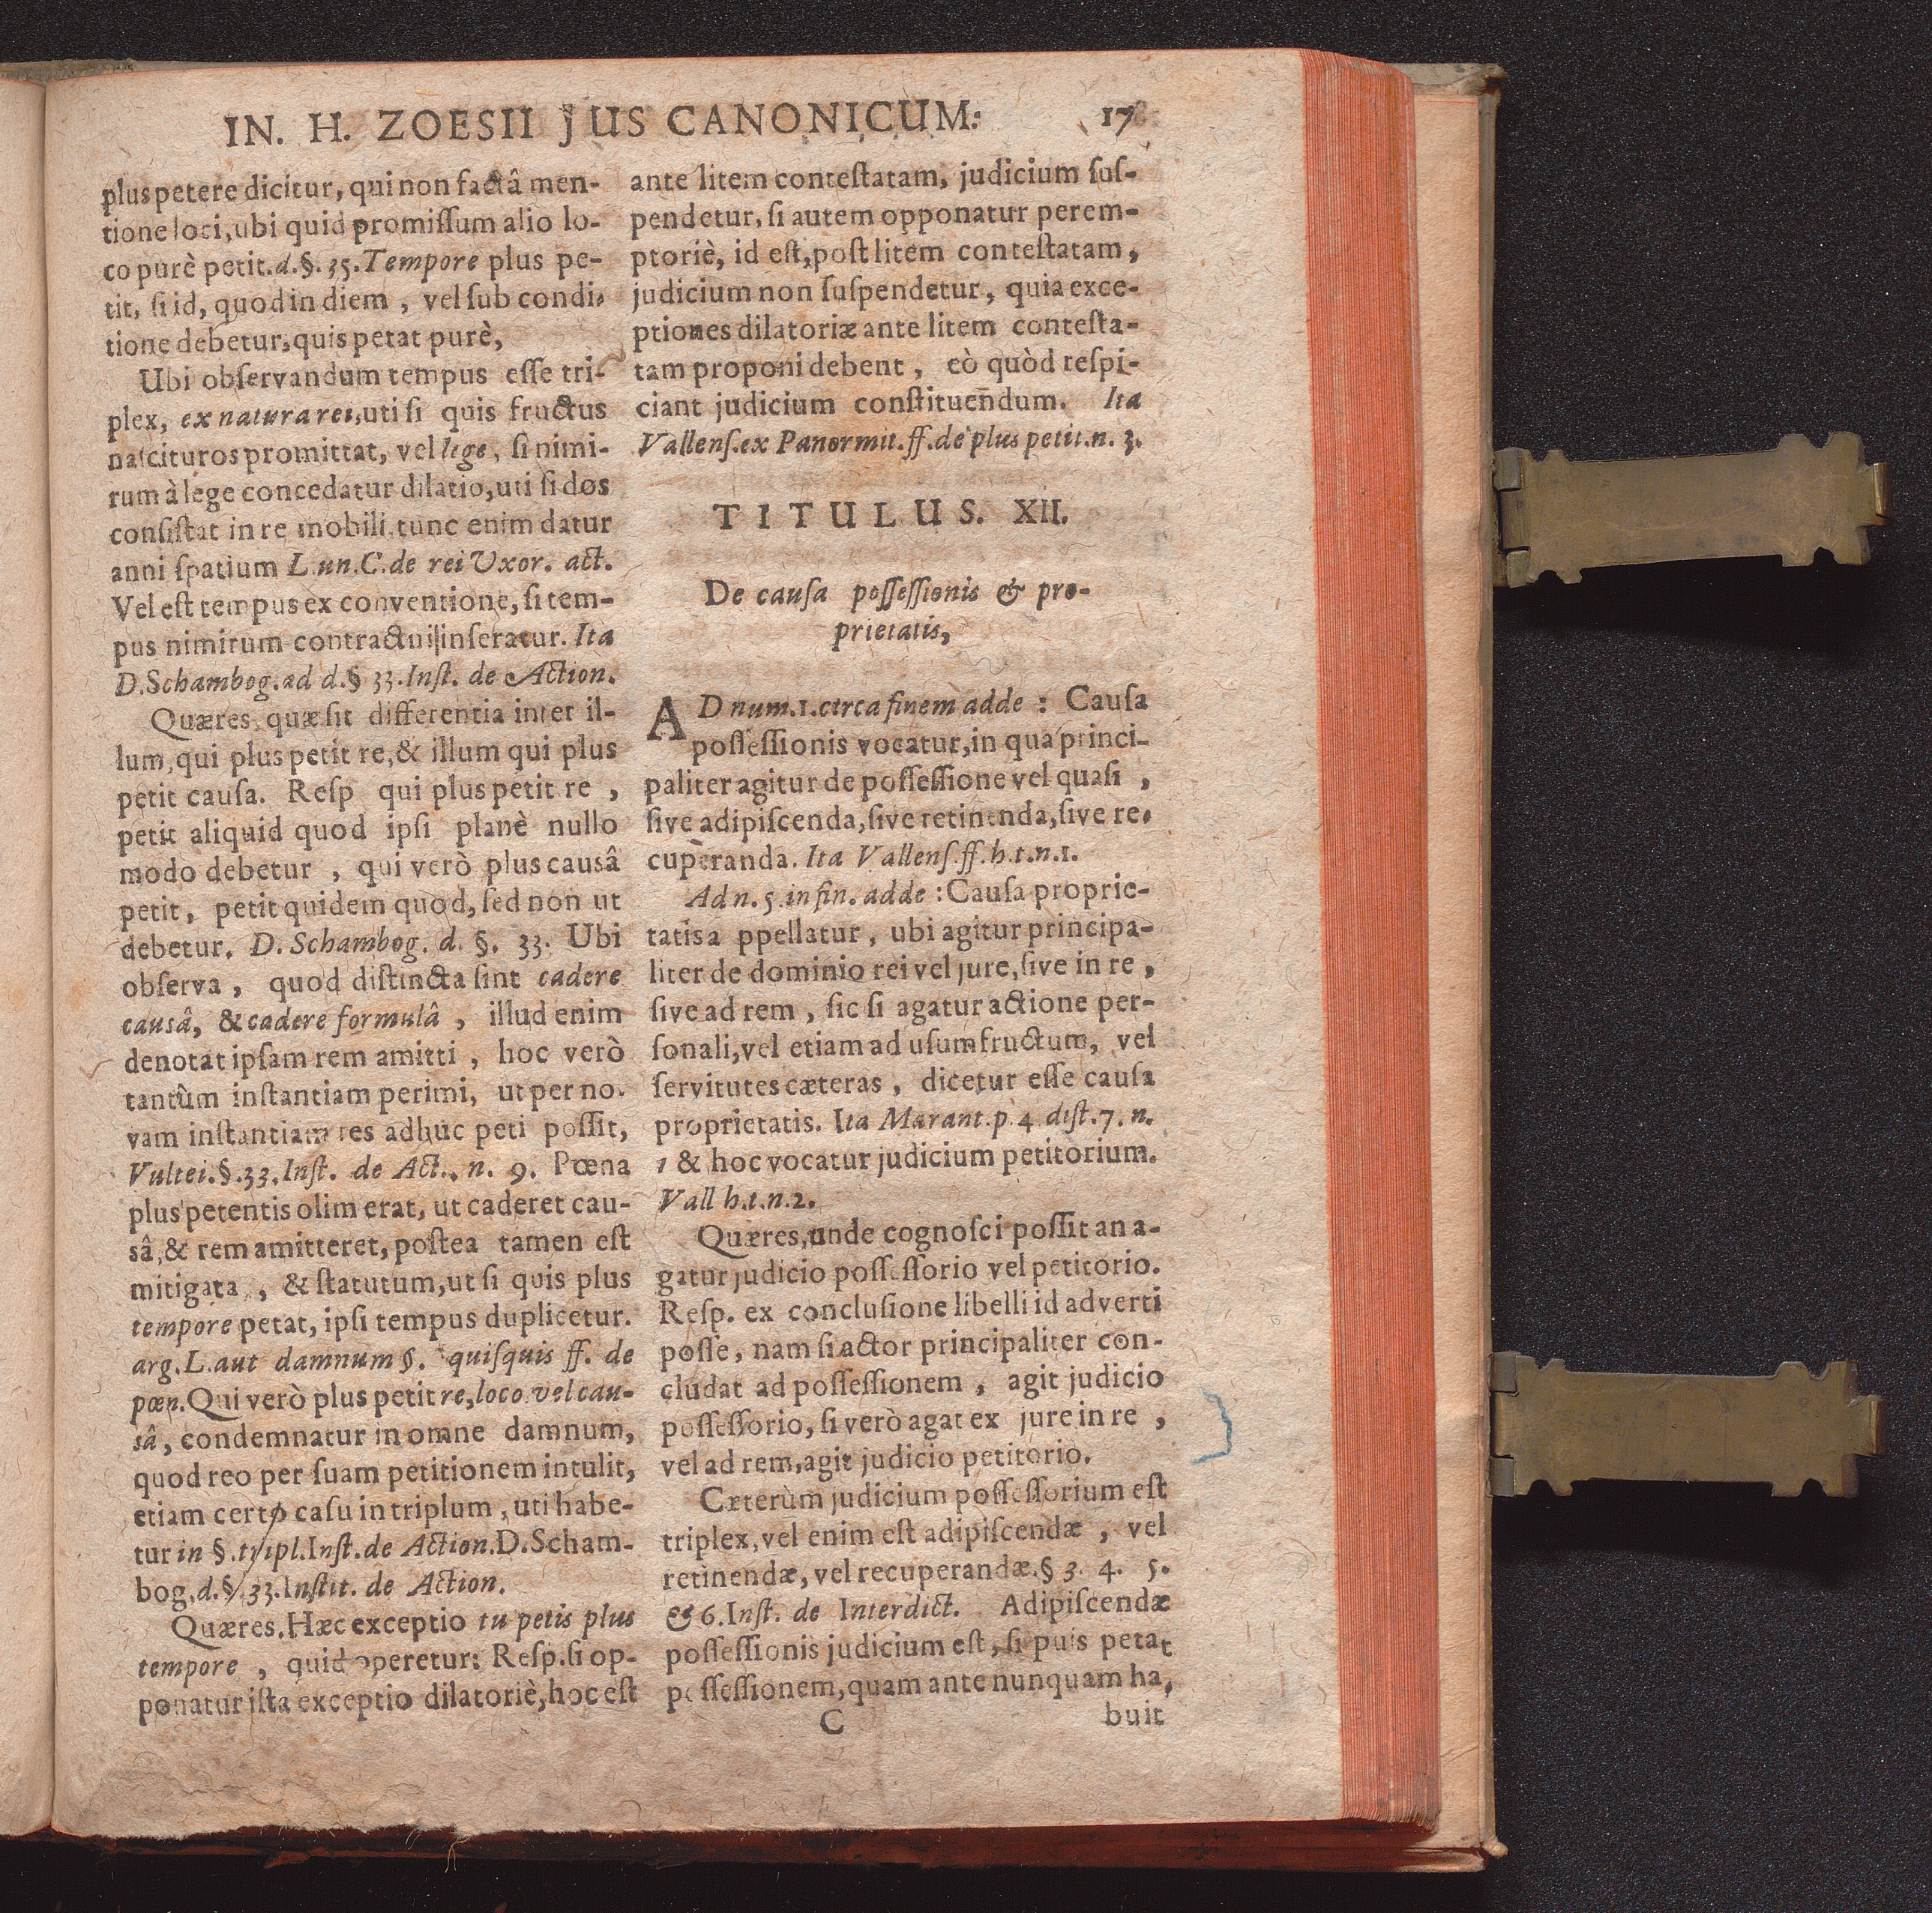 IN. H. ZOESII JUS CANONICUM: 17
plus petere dicitur, qui non factâ men-
tione loci, ubi quid promiſſum alio lo-
co purè petit. d. §. 35. Tempore plus pe-
tit, ſi id, quod in diem, vel ſub condi-
tione debetur, quis petat purè,
Ubi obſervandum tempus eſſe tri-
plex, ex natura rei, uti ſi quis fructus
naſcituros promittat, vel lege, ſi nimi-
rum à lege concedatur dilatio, uti ſi dos
conſiſtat in re mobili, tunc enim datur
anni ſpatium L. un. C. de rei Uxor. act.
Vel eſt tempus ex conventione, ſi tem-
pus nimirum contractui inſeratur. Ita
D. Schambog. ad d. § 33. Inſt. de Action.
Quæres, quæ ſit differentia inter il-
lum, qui plus petit re, & illum qui plus
petit cauſa. Reſp qui plus petit re,
petit aliquid quod ipſi planè nullo
modo debetur, qui verò plus causâ
petit, petit quidem quod, ſed non ut
debetur. D. Schambog. d. §. 33. Ubi
obſerva, quod diſtincta ſint cadere
causâ, & cadere formulâ, illud enim
denotat ipſam rem amitti, hoc verò
tantùm inſtantiam perimi, ut per no-
vam inſtantiam res adhuc peti poſſit,
Vultei. §. 33. Inſt. de Act., n. 9. Pœna
plus petentis olim erat, ut caderet cau-
sâ, & rem amitteret, poſtea tamen eſt
mitigata, & ſtatutum, ut ſi quis plus
tempore petat, ipſi tempus duplicetur.
arg. L. aut damnum §. quiſquis ff. de
pœn. Qui verò plus petit re, loco vel cau-
sâ, condemnatur in omne damnum,
quod reo per ſuam petitionem intulit,
etiam certo caſu in triplum, uti habe-
tur in §. tripl. Inſt. de Action. D. Scham-
bog. d. § 33. Inſtit. de Action.
Quæres. Hæc exceptio tu petis plus
tempore, quid operetur: Reſp. ſi op-
ponatur iſta exceptio dilatoriè, hoc eſt
ante litem conteſtatam, judicium ſuſ-
pendetur, ſi autem opponatur perem-
ptoriè, id eſt, poſt litem conteſtatam,
judicium non ſuſpendetur, quia exce-
ptiones dilatoriæ ante litem conteſta-
tam proponi debent, eò quòd reſpi-
ciant judicium conſtituen̄dum. Ita
Vallenſ. ex Panormit. ff. de plus petit. n. 3.
TITULUS. XII.
De cauſa poſſeſſionis & pro-
prietatis,
AD num. 1. circa finem adde: Cauſa
poſſeſſionis vocatur, in qua princi-
paliter agitur de poſſeſſione vel quaſi,
ſive adipiſcenda, ſive retinenda, ſive re-
cuperanda. Ita Vallenſ. ff. h. t. n. 1.
Ad n. 5. in fin. adde: Cauſa proprie-
tatis a ppellatur, ubi agitur principa-
liter de dominio rei vel jure, ſive in re,
ſive ad rem, ſic ſi agatur actione per-
ſonali, vel etiam ad uſumfructum, vel
ſervitutes cæteras, dicetur eſſe cauſa
proprietatis. Ita Marant. p. 4 diſt. 7. n.
1 & hoc vocatur judicium petitorium.
Vall h. t. n. 2.
Quæres, unde cognoſci poſſit an a-
gatur judicio poſſeſſorio vel petitorio.
Reſp. ex concluſione libelli id adverti
poſſe, nam ſi actor principaliter con-
cludat ad poſſeſſionem, agit judicio
poſſeſſorio, ſi verò agat ex jure in re,
vel ad rem, agit judicio petitorio.
Cæterùm judicium poſſeſſorium eſt
triplex, vel enim eſt adipiſcendæ, vel
retinendæ, vel recuperandæ. § 3. 4. 5.
& 6. Inſt. de Interdict. Adipiſcendæ
poſſeſſionis judicium eſt, ſi puis petat
poſſeſſionem, quam ante nunquam ha,
C buit